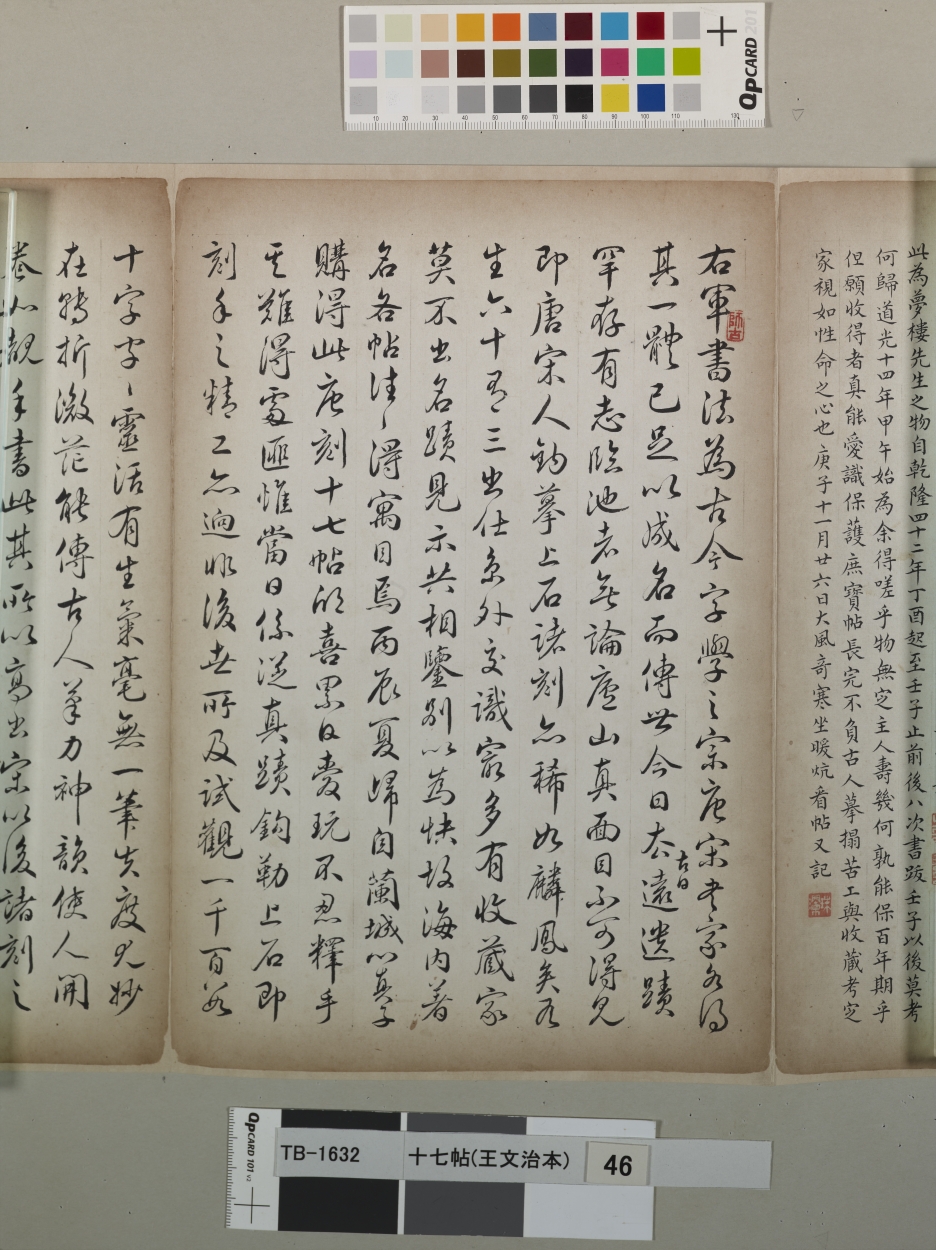 此為夢樓先生之物自乾隆四十二年丁酉起至壬子止前後八次書跋壬子以後莫考
何歸道光十四年甲午始為余得嗟乎物無定主人壽幾何孰能保百年期乎
但願收得者真能愛識保護庶寶帖長完不負古人摹搨苦工與收藏考定
家視如性命之心也庚子十一月廿六日大風奇寒坐暖炕看帖又記
右軍書法為古今字學之宗唐宋大家各得
其一體已足以成名而傳世今日去古日遠遺蹟
罕存有志臨池者無論廬山真面目不可得見
即唐宋人鈎摹上石諸刻亦稀如麟鳳矣
生六十有三出仕京外交識最多有收藏家
莫不出名蹟見示共相鑒別以為快故海内著
名各帖往〻得寓目焉丙辰夏歸自蘭城
購得此唐刻十七帖欣喜累日愛玩不忍釋手
其難得處匪惟當日係從真蹟鈎勒上石即
刻手之精工亦迥非後世所及試觀一千百數
十字字〻靈活有生氣毫無一筆失度其妙
在轉折微茫能傳古人筆力神韻使人開
卷如覩手書此其所以高出宋以後諸刻之
師古
QPCARD 201
QPCARD 101 v2
TB-1632 十七帖(王文治本) 46